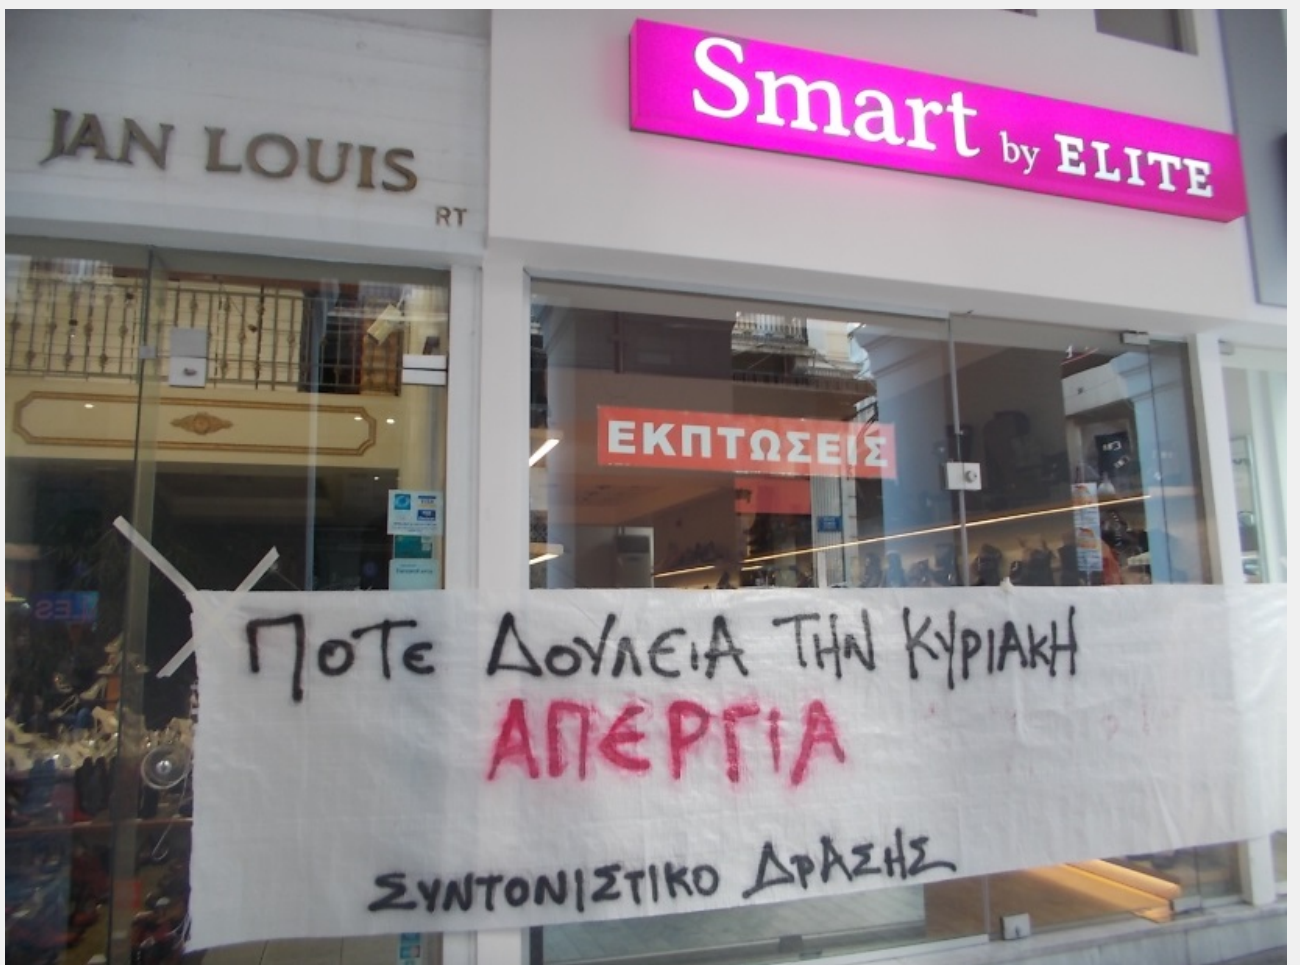 JAN LOUIS
RT
Smart by ELITE
ΕΚΠΤΩΣΕΙΣ
ΠΟΤΕ ΔΟΥΛΕΙΑ ΤΗΝ ΚΥΡΙΑΚΗ
ΑΠΕΡΓΙΑ
ΣΥΝΤΟΝΙΣΤΙΚΟ ΔΡΑΣΗΣ